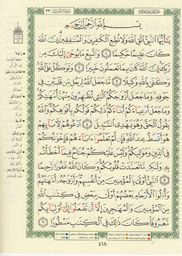 بِسْمِ اللَّهِ الرَّحْمَٰنِ الرَّحِيمِ
يَٰٓأَيُّهَا ٱلنَّبِيُّ ٱتَّقِ ٱللَّهَ وَلَا تُطِعِ ٱلْكَٰفِرِينَ وَٱلْمُنَٰفِقِينَ إِنَّ ٱللَّهَ
كَانَ عَلِيمًا حَكِيمًا ١ وَٱتَّبِعْ مَا يُوحَىٰٓ إِلَيْكَ مِن
رَّبِّكَ إِنَّ ٱللَّهَ كَانَ بِمَا تَعْمَلُونَ خَبِيرًا ٢ وَتَوَكَّلْ عَلَى ٱللَّهِ
وَكَفَىٰ بِٱللَّهِ وَكِيلًا ٣ مَّا جَعَلَ ٱللَّهُ لِرَجُلٍ مِّن قَلْبَيْنِ فِي
جَوْفِهِۦ وَمَا جَعَلَ أَزْوَٰجَكُمُ ٱلَّٰٓـِٔي تُظَٰهِرُونَ مِنْهُنَّ أُمَّهَٰتِكُمْ
وَمَا جَعَلَ أَدْعِيَآءَكُمْ أَبْنَآءَكُمْ ذَٰلِكُمْ قَوْلُكُم بِأَفْوَٰهِكُمْ وَٱللَّهُ
يَقُولُ ٱلْحَقَّ وَهُوَ يَهْدِي ٱلسَّبِيلَ ٤ ٱدْعُوهُمْ لِأٓبَآئِهِمْ
هُوَ أَقْسَطُ عِندَ ٱللَّهِ فَإِن لَّمْ تَعْلَمُوٓا۟ ءَابَآءَهُمْ فَإِخْوَٰنُكُمْ
فِي ٱلدِّينِ وَمَوَٰلِيكُمْ وَلَيْسَ عَلَيْكُمْ جُنَاحٌ فِيمَآ أَخْطَأْتُم
بِهِۦ وَلَٰكِن مَّا تَعَمَّدَتْ قُلُوبُكُمْ وَكَانَ ٱللَّهُ غَفُورًا رَّحِيمًا ٥
ٱلنَّبِيُّ أَوْلَىٰ بِٱلْمُؤْمِنِينَ مِنْ أَنفُسِهِمْ وَأَزْوَٰجُهُۥٓ أُمَّهَٰتُهُمْ
وَأُو۟لُوا۟ ٱلْأَرْحَامِ بَعْضُهُمْ أَوْلَىٰ بِبَعْضٍ فِي كِتَٰبِ ٱللَّهِ
مِنَ ٱلْمُؤْمِنِينَ وَٱلْمُهَٰجِرِينَ إِلَّآ أَن تَفْعَلُوٓا۟ إِلَىٰٓ أَوْلِيَآئِكُم
مَّعْرُوفًا كَانَ ذَٰلِكَ فِي ٱلْكِتَٰبِ مَسْطُورًا ٦
٤١٨